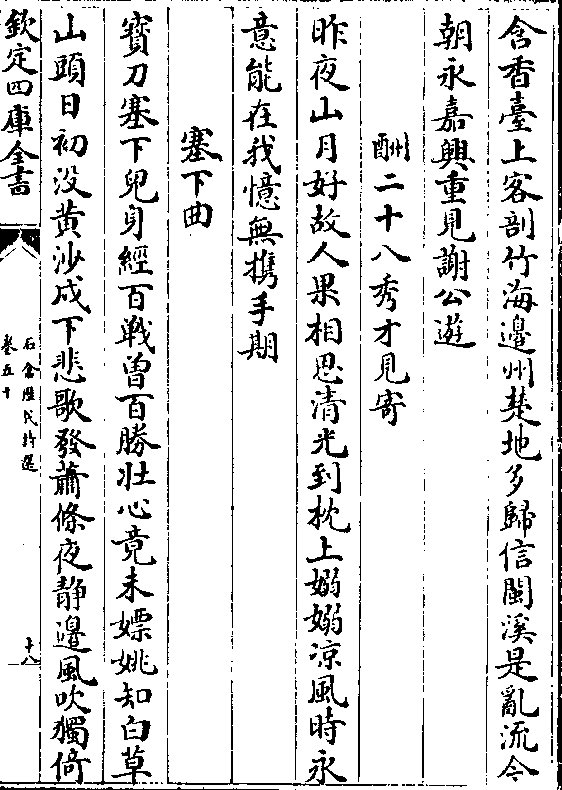 含香臺上客剖竹海邊州楚地多歸信閩溪是亂流今
朝永嘉興重見謝公遊
酬二十八秀才見寄
昨夜山月好故人果相思清光到枕上嫋嫋凉風時永
意能在我憶無攜手期
塞下曲
寳刀塞下兒身經百戰曽百勝壯心竟未嫖姚知白草
山頭日初没黄沙戍下悲歌發蕭條夜静邉風吹獨倚
欽定四庫全書
石倉歴代詩選
卷五十
十八